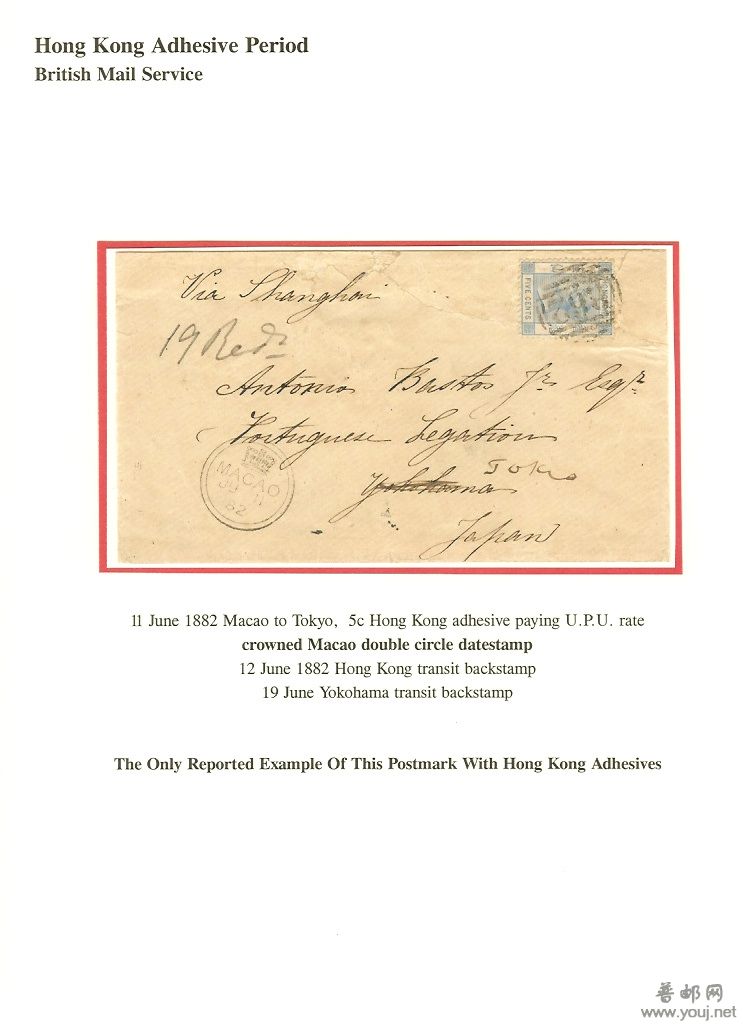 Hong Kong Adhesive Period
British Mail Service
Via Shanghai
FIVE CENTS
19 Recd
Antonio Basttos Jr Esqr
Portuguese Legation
Tokio
Yokohama
Japan
MACAO
JU 11
82
11 June 1882 Macao to Tokyo, 5c Hong Kong adhesive paying U.P.U. rate
crowned Macao double circle datestamp
12 June 1882 Hong Kong transit backstamp
19 June Yokohama transit backstamp
The Only Reported Example Of This Postmark With Hong Kong Adhesives
普邮网
www.youj.net